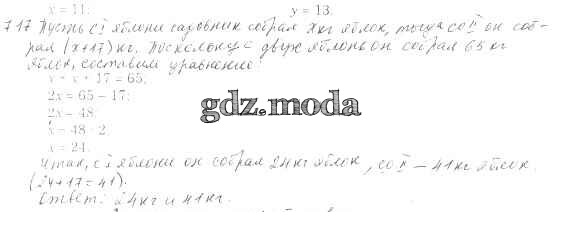 x = 11; y = 13.
717 Пусть с I яблони садовник собрал x кг яблок, тогда со II он соб-
рал (x+17) кг. Поскольку с двух яблонь он собрал 65 кг
яблок, составим уравнение:
x + x + 17 = 65;
2x = 65 − 17;
2x = 48;
gdz.moda
x = 48 : 2;
x = 24.
Итак, с I яблони он собрал 24 кг яблок, со II — 41 кг яблок.
(24+17=41).
Ответ: 24 кг и 41 кг.